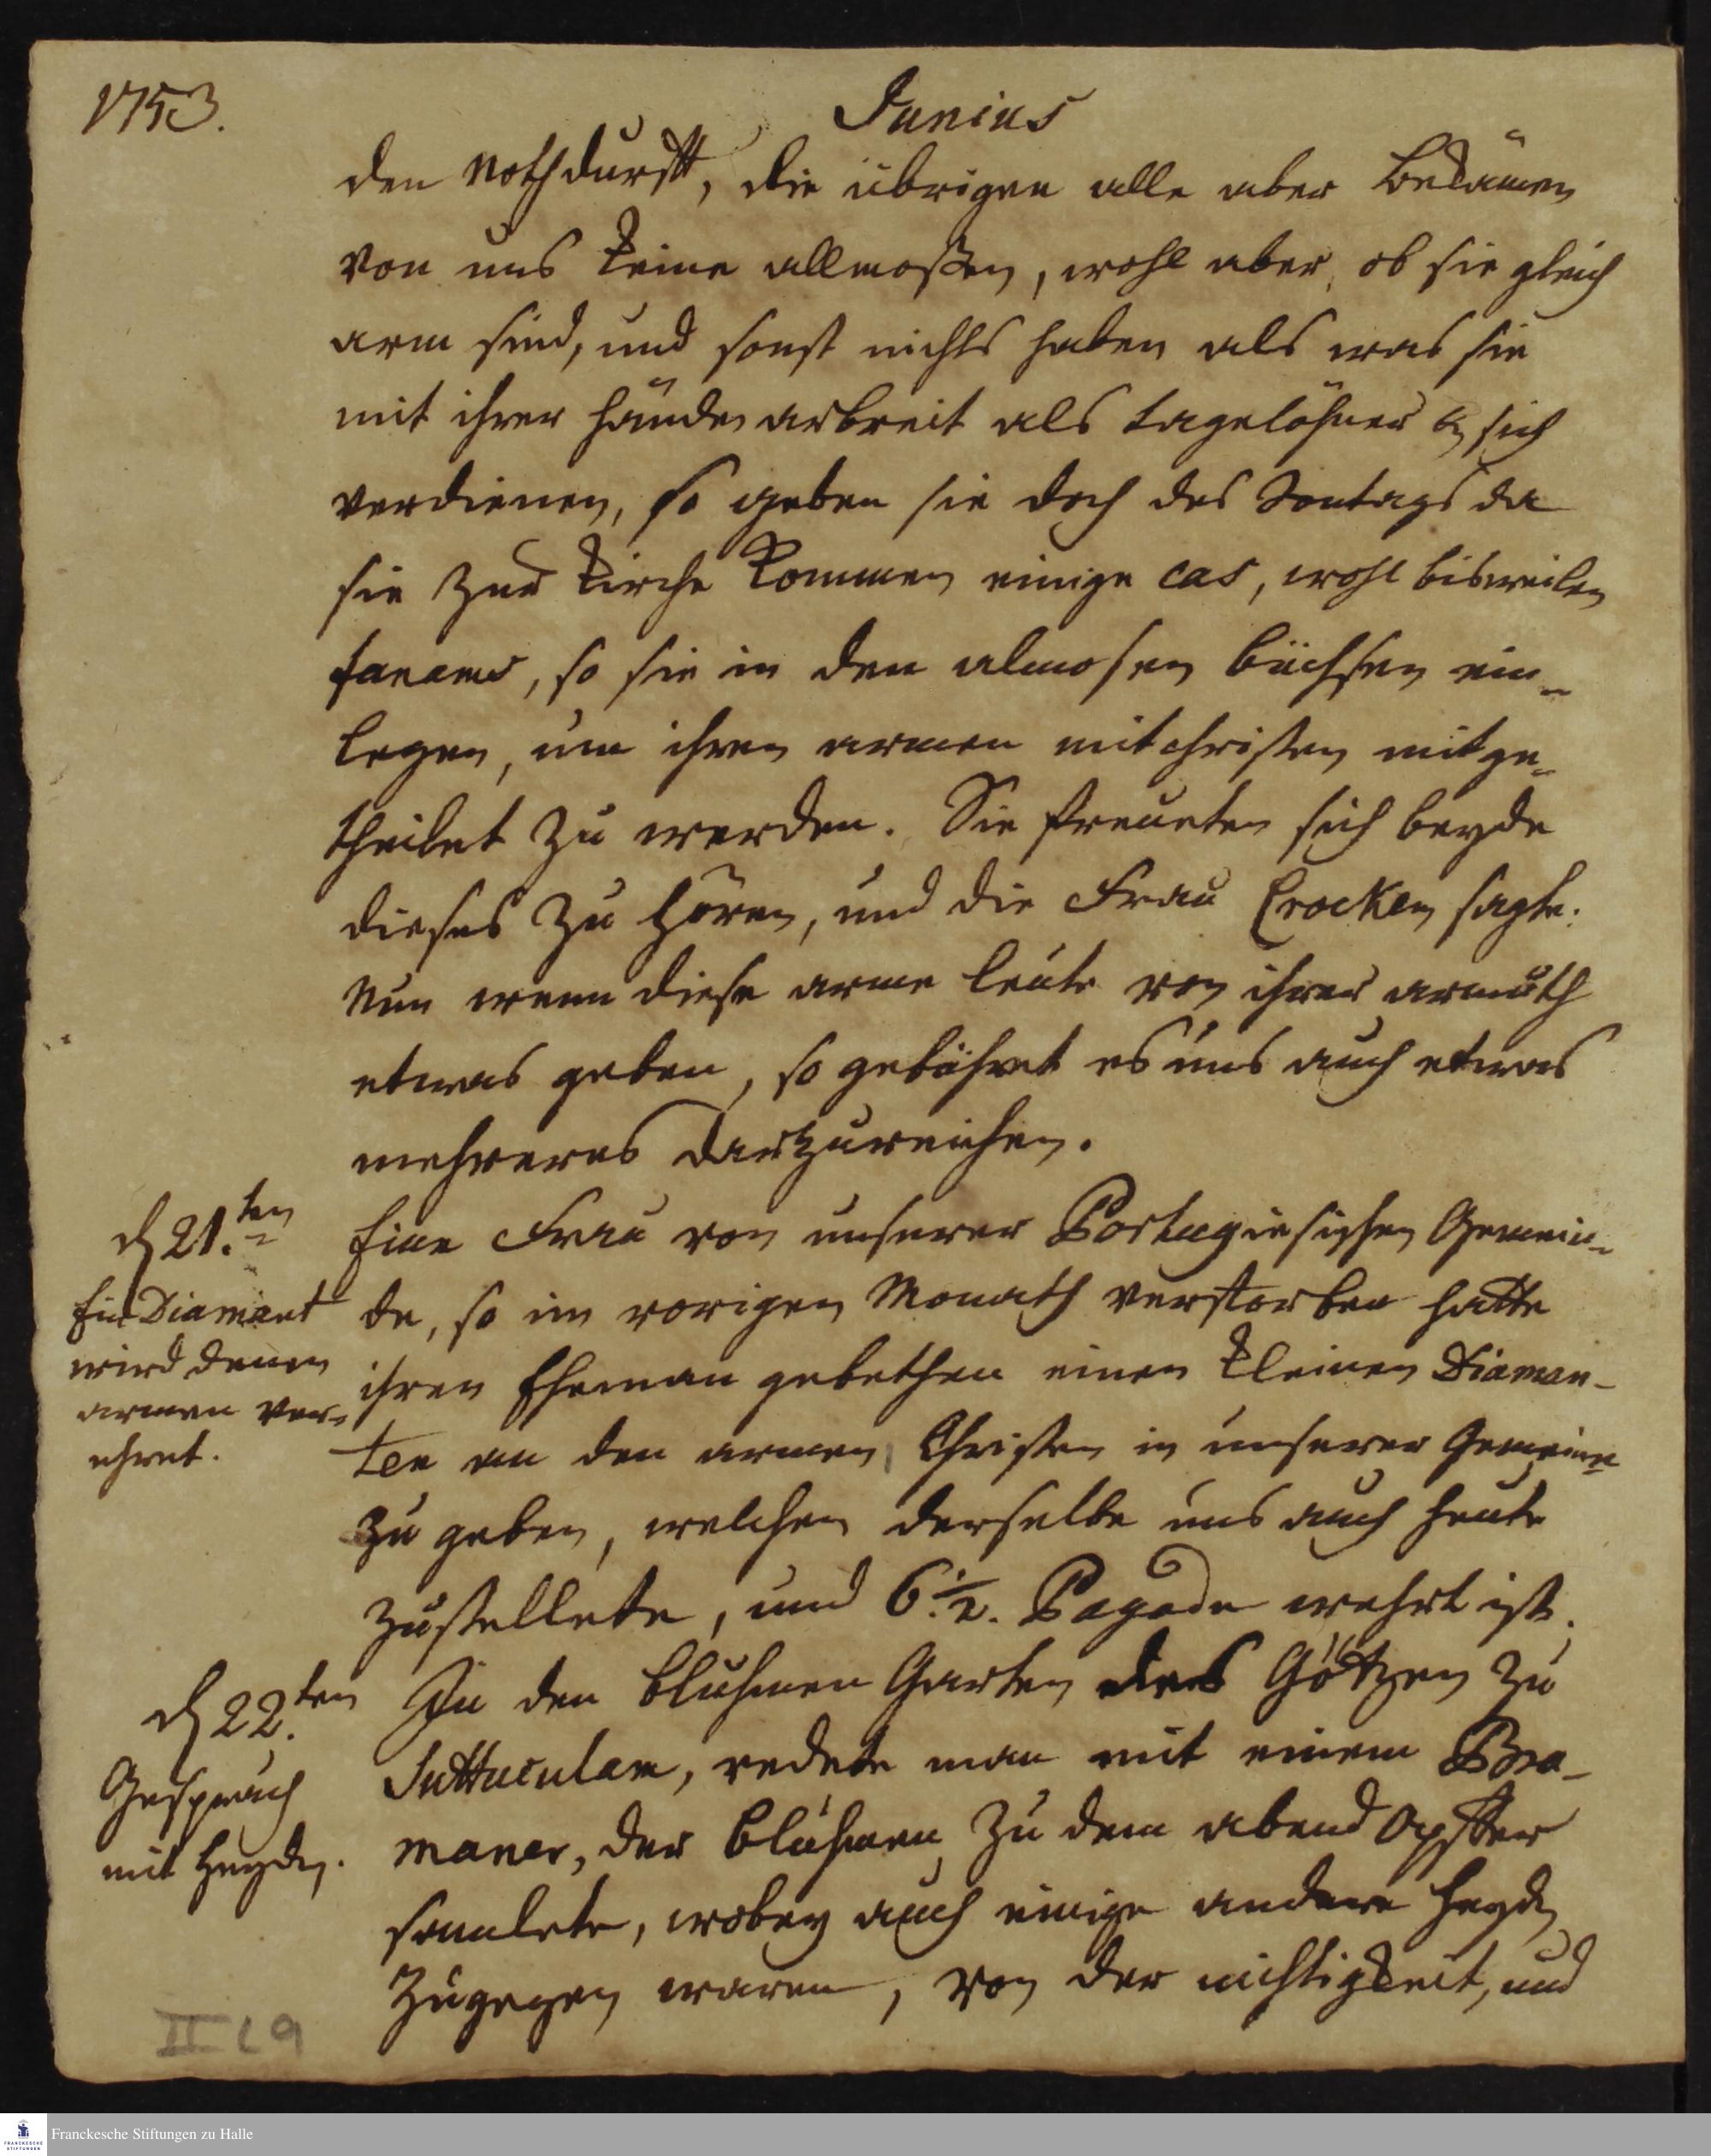 1753.
Junius
den nothdurfft, die übrigen alle aber bekämen
von uns keine allmoßen, wohl aber, ob sie gleich
arm sind, und sonst nichts haben als was sie
mit ihrer händen arbeit als tagelöhner & sich
verdienen, so geben sie doch des Sontags da
sie zur Kirche kommen einige cas, wohl bisweilen
fanams, so sie in den almosen büchsen ein-
legen, um ihren armen mitchristen mitge-
theilet zu werden. Sie freueten sich beyde
dieses zu hören, und die Frau Crocken sagte:
Nun wenn diese arme leute von ihrer armuth
etwas geben, so gebühret es uns auch etwas
mehreres darzureichen.
d 21.ten
Ein Diamant
wird denen
armen ver-
ehret.
Eine Frau von unserer Portugiesischen Gemein-
de, so im vorigen Monath verstorben hatte
ihren Eheman gebethen einen kleinen Diaman-
ten an den armen Christen in unserer Gemeine
zu geben, welchen derselbe uns auch heute
zustellete, und 6 1/2. Pagode wehrt ist.
d 22.ten
Gespräch
mit Heyden.
In den bluhmen Garten des Götzen zu
Suttuculam, redete man mit einem Bra-
maner, der bluhmen zu dem abend opffer
samlete, wobey auch einige andere Heyden
zugegen waren, von der nichtigkeit, und
II L 9
Franckesche Stiftungen zu Halle
FRANCKESCHE STIFTUNGEN